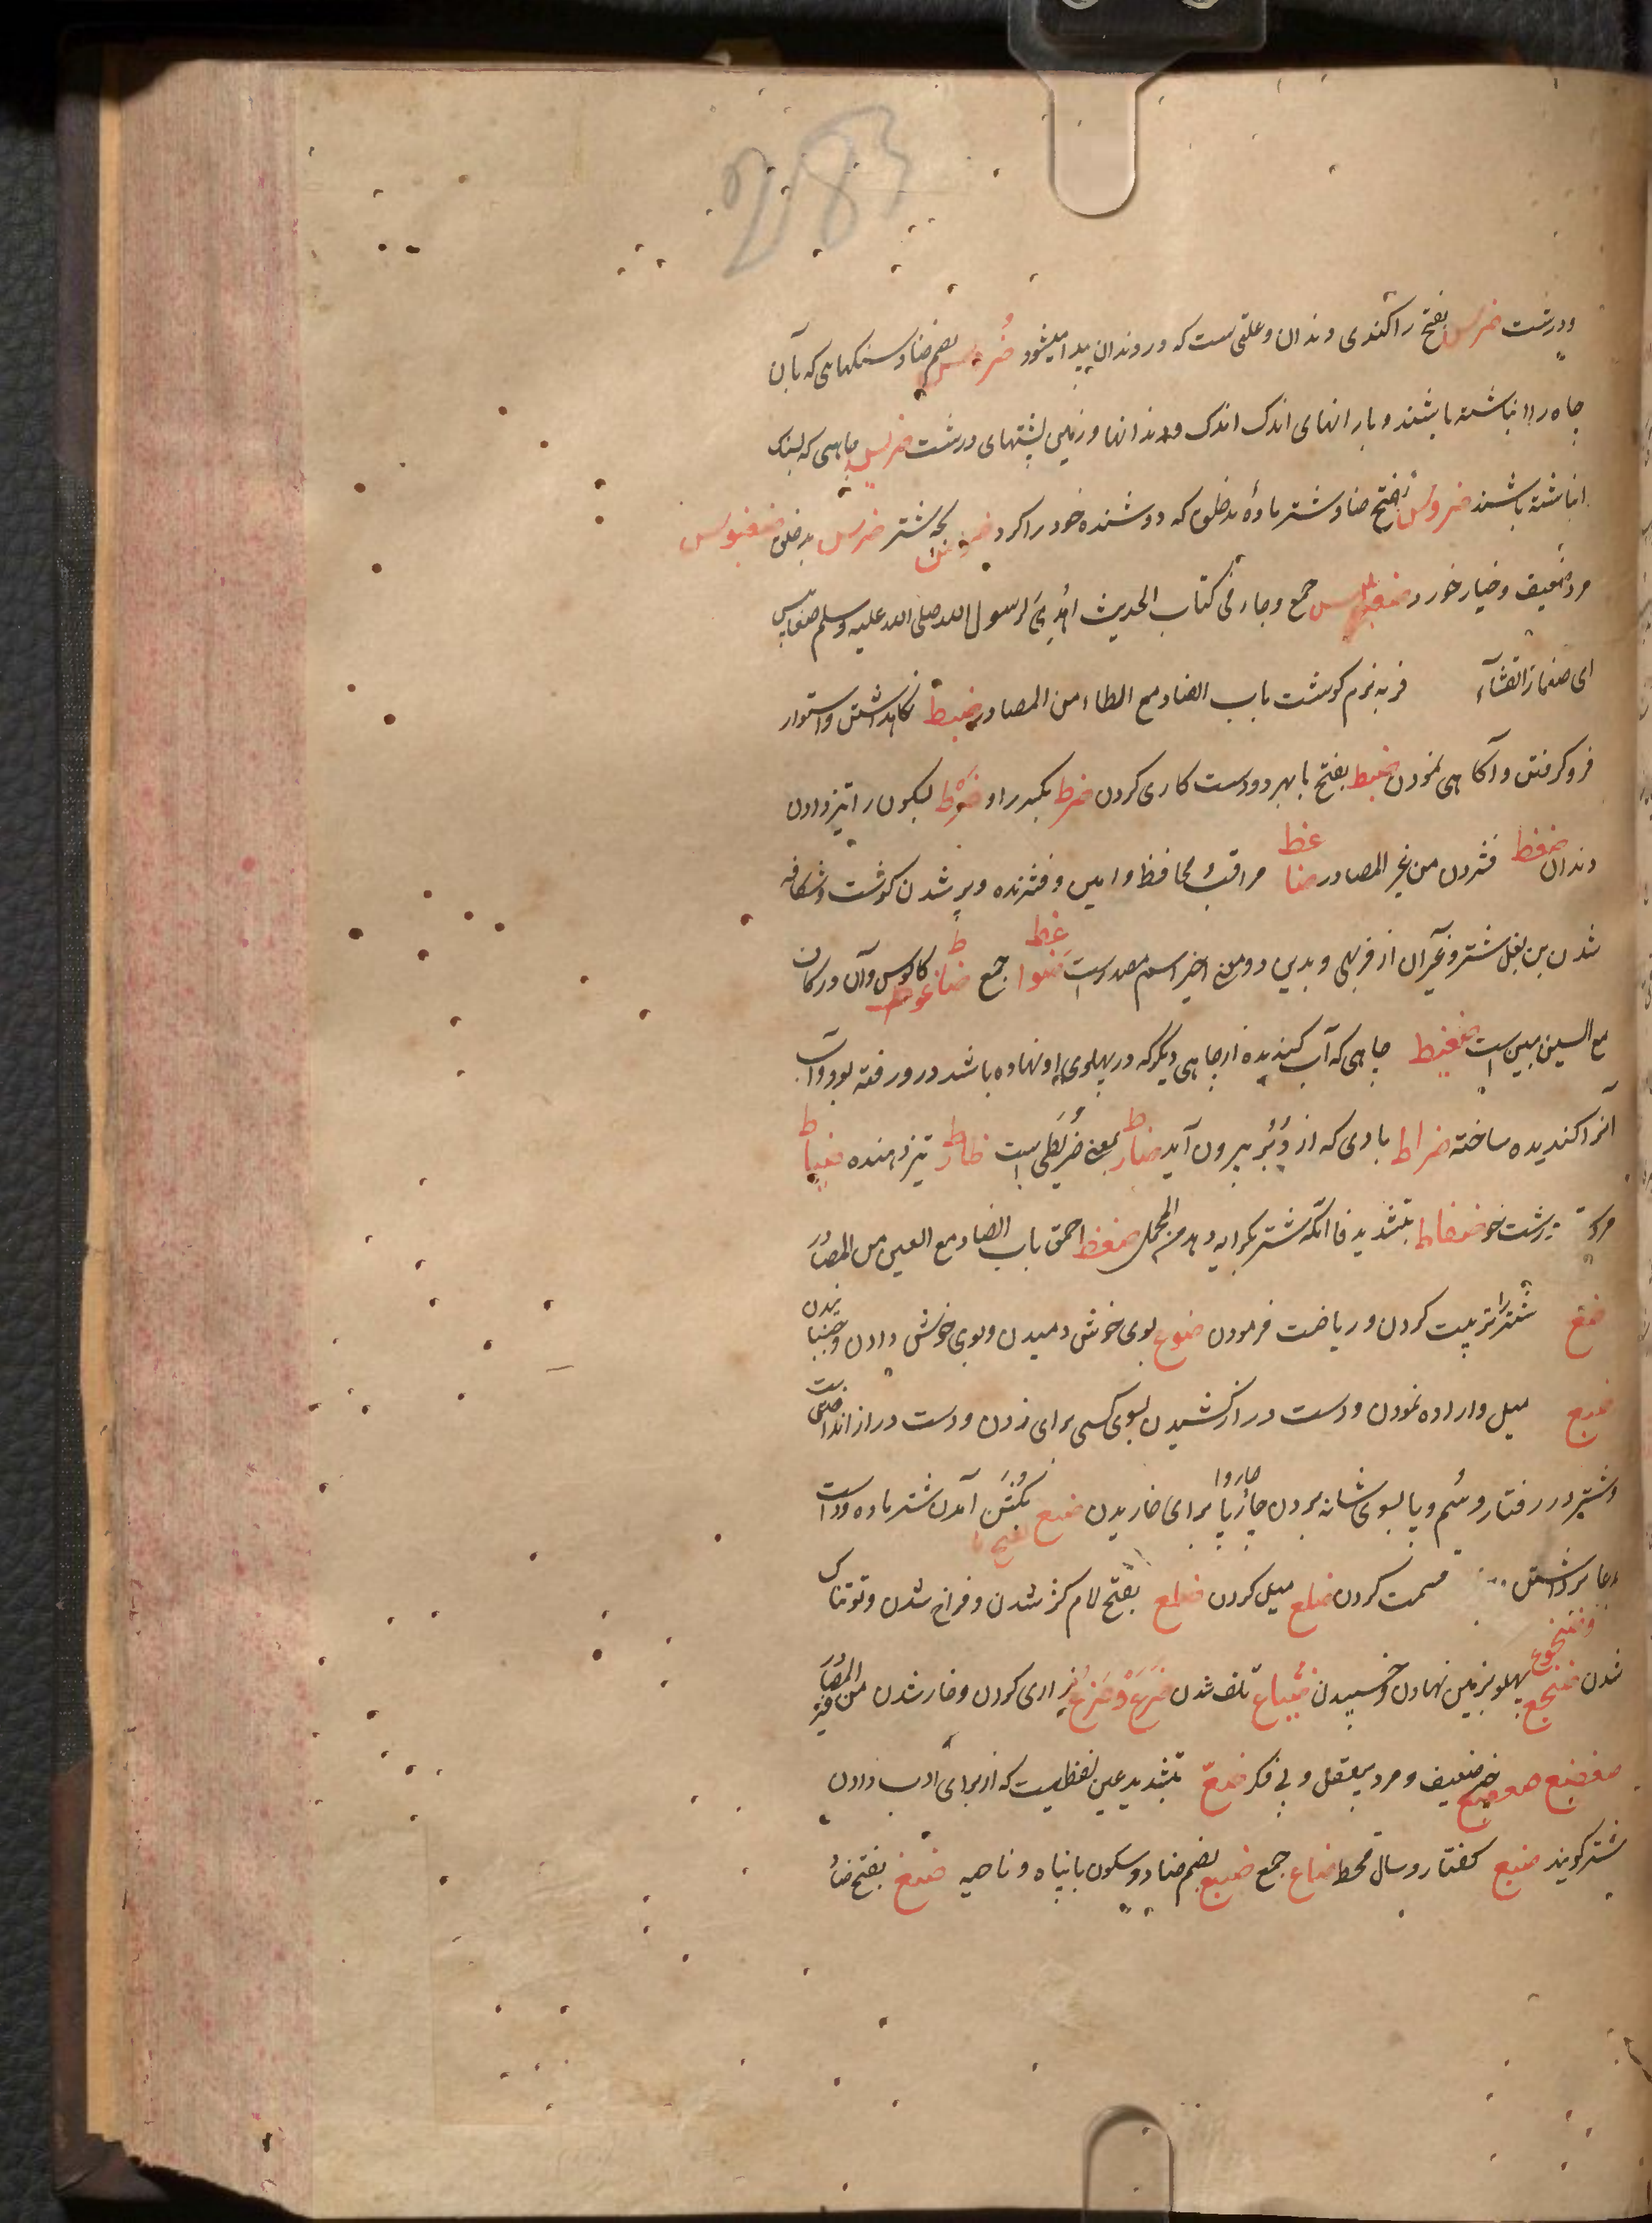 283
ودرشت ضرس بفتح را کندی دندان وعلتی ست که در دندان پیدا میشود ضرس بضم ضاد سنکهایی که بآن
چاه را انباشته باشند و بارانهای اندک اندک و دندانها و زمین پشتهای درشت ضریس چاهی که بسنک
انباشته باشند ضروس بفتح ضاد شتر ماده بدخلق که دوشنده خود را کرد بچه شتر ضرس بدخلق ضغبوس
مرد ضعیف وخیار خورد ضغابیس جمع وجاء فی کتاب الحدیث اُهدِیَ لرسول الله صلی الله علیه وسلم ضغابیس
ای صغار القثآء فربه نرم کوشت باب الضاد مع الطاء من المصادر ضبط نکاهداشتن واستوار
فروکرفتن وآکاهی نمودن ضبط بفتح با بهر دو دست کاری کردن ضرط بکسر را و ضَرْط بسکون را تیز دادن
دندان ضغط فشردن من غیر المصادر ضاغط مراقب ومحافظ وامین وفشرنده وپر شدن کوشت وشکافه
شدن بن بغل شتر وغیر آن از فربهی و بدین دو معنی اخیر اسم مصدرست ضواغط جمع ضاغط ضاغوط کابوس وآن در کاف
مع السین مبین ست ضغیط چاهی که آب کندیده از چاهی دیکر که در پهلوی او نهاده باشد درو رفته بود وآب
آنرا کندیده ساخته ضراط بادی که از دُبُر بیرون آید ضراط بمعنی ضریطی است ضارط تیز دهنده ضیاط
مرد درشت خو ضفاط بتشدید فا آنکه شتر بکرایه دهد من المجمل ضغط احمق باب الضاد مع العین من المصادر
ضبع شتر را تربیت کردن و ریاضت فرمودن ضوع بوی خوش دمیدن وبوی خوش دادن وجنبانیدن
ضبع میل واراده نمودن ودست دراز کشیدن بسوی کسی برای زدن ودست دراز انداختن
شتر در رفتار وسُم وپا بسوی شانه بردن چارپا چاروا برای خاریدن ضبع بفتح با بکشن آمدن شتر ماده ودست
بدعا برداشتن قسمت کردن ضلع میل کردن ضلع بفتح لام کژ شدن وفراخ شدن وقوتناک
شدن ضجع وضجوع پهلو بزمین نهادن وخسپیدن ضیاع تلف شدن ضَرَع وضَرْع زاری کردن وخار شدن من غیر المصادر
ضعیف ومرد بیعقل و بی فکر ضع بتشدید عین لفظیست که از برای ادب دادن
شتر کویند ضبع کفتار وسال قحط ضباع جمع ضبع بضم ضاد وسکون با پناه وناحیه ضبع بفتح ضاد